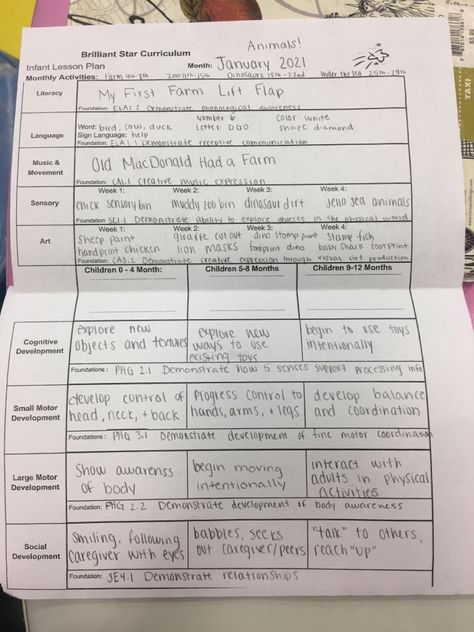 Animals!
Brilliant Star Curriculum
Infant Lesson Plan
Month: January 2021
Monthly Activities: Farm 4th-8th Zoo 11th-15th Dinosaurs 18th-22nd Under the Sea 25th-29th
Literacy
My First Farm Lift Flap
Foundation: ELA1.2 Demonstrate phonological awareness
Language
Number 6 Color: White
Word: bird, cow, duck Letter: D Q O shape diamond
Sign Language: help
Foundation: ELA1.1 Demonstrate receptive communication
Music &
Movement
Old MacDonald Had a Farm
Foundation: CA1.1 creative music expression
Sensory
Week 1: Week 2: Week 3: Week 4:
chick sensory bin muddy zoo bin dinosaur dirt jello sea animals
Foundation: SC1.1 Demonstrate ability to explore objects in the physical world
Art
Week 1: Week 2: Week 3: Week 4:
sheep paint giraffe cut out dino stomp paint stamp fish
handprint chicken lion masks footprint dino baby shark footprint
Foundation: CA3.2 Demonstrate creative expression through visual art production
Children 0 - 4 Month: Children 5-8 Months Children 9-12 Months
Cognitive
Development
explore new objects and textures
explore new ways to use existing toys
begin to use toys intentionally
Foundations: PHG 2.1 Demonstrate how 5 senses support processing info
Small Motor
Development
develop control of head, neck, + back
Progress control to hands, arms, + legs
develop balance and coordination
Foundations: PHG 3.1 Demonstrate development of fine motor coordination
Large Motor
Development
Show awarenss of body
begin moving intentionally
interact with adults in physical activities
Foundation: PHG 2.2 Demonstrate development of body awareness
Social
Development
smiling, following caregiver with eyes
babbles, seeks out caregiver/peers
"talk" to others, reach "up"
Foundation: SE4.1 Demonstrate relationships
TAXI